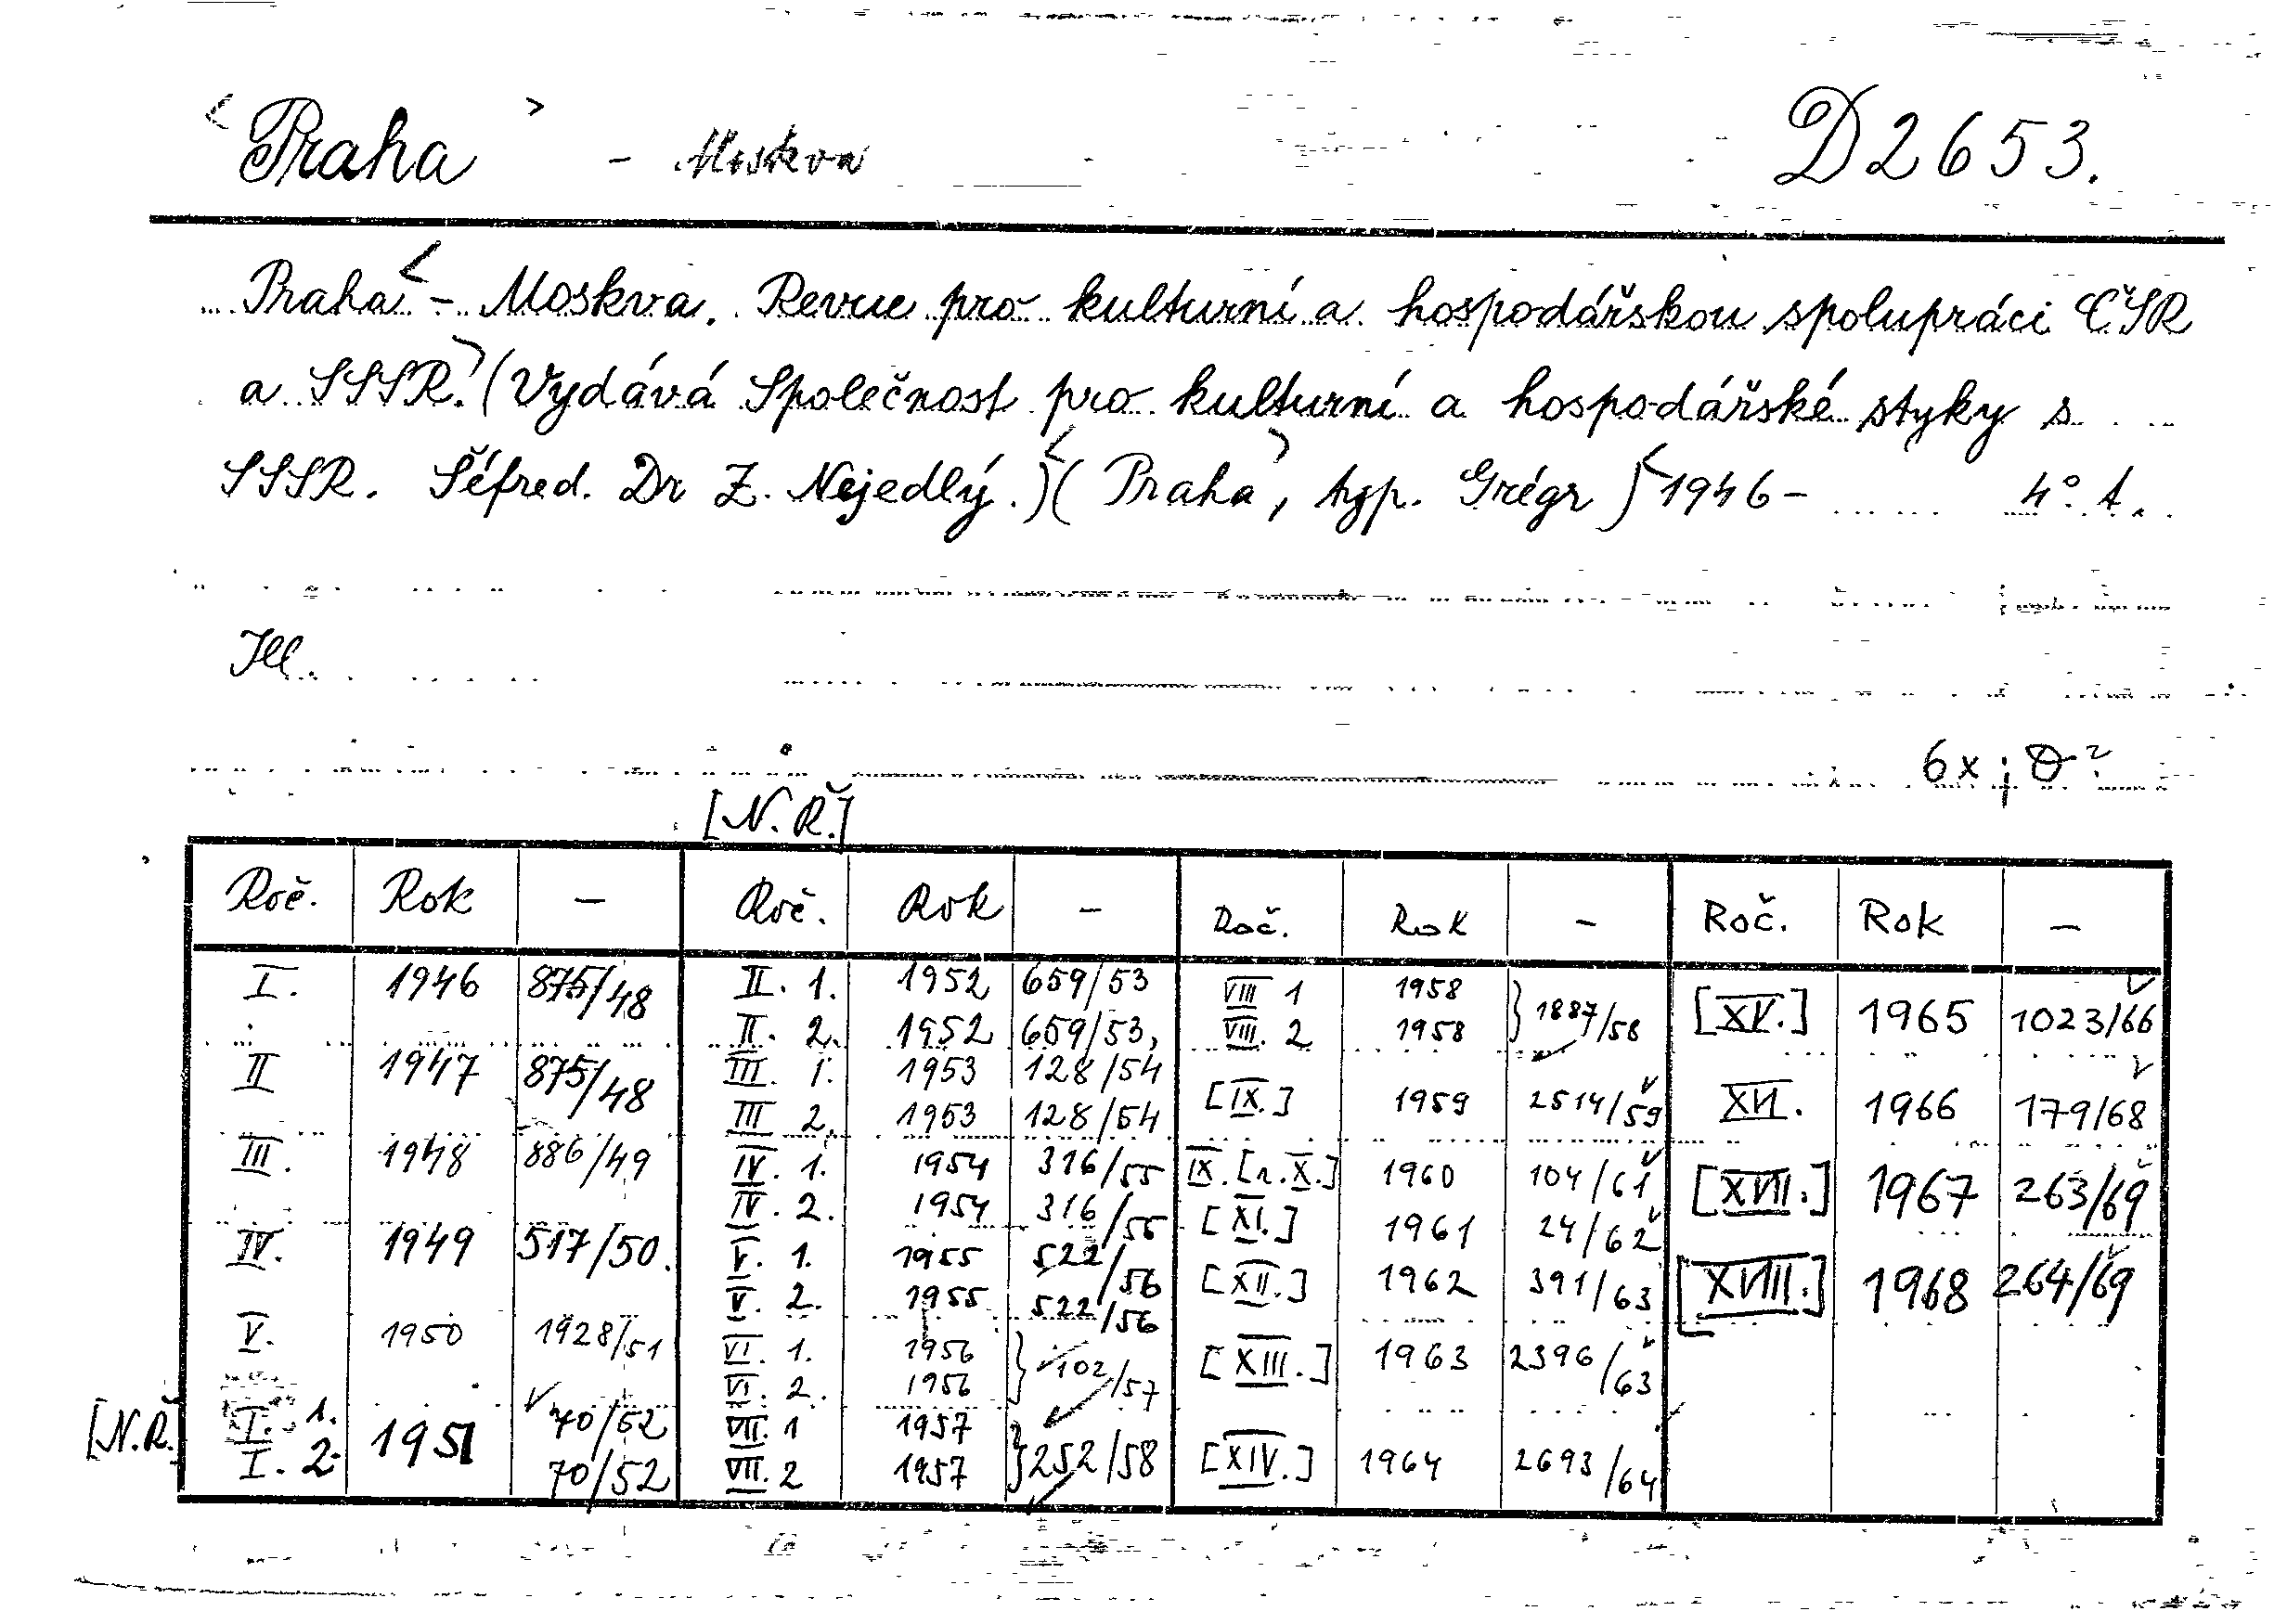 <Praha> - Moskva D 2653.
Praha<- Moskva. Revue pro kulturní a hospodářskou spolupráci ČSR
a SSSR.> (Vydává Společnost pro kulturní a hospodářské styky s
SSSR. Šéfred. Dr Z. Nejedlý.) (<Praha>, typ. Grégr) <1946- 4°. t.
Ill.
6x;
[N. Ř.]
Roč. Rok - Roč. Rok - Roč. Rok - Roč. Rok -
I. 1946 875/48 II. 1. 1952 659/53 VIII 1 1958 } 1887/58 [XV.] 1965 1023/66
II. 2. 1952 659/53, VIII. 2 1958
II 1947 875/48 III. 1. 1953 128/54 [IX.] 1959 2514/59 XVI. 1966 179/68
III 2. 1953 128/54
III. 1948 886/49 IV. 1. 1954 316/55 IX. [r. X.] 1960 104/61 [XVII.] 1967 263/69
IV. 2. 1954 316/55 [XI.] 1961 24/62
IV. 1949 517/50. V. 1. 1955 522/56 [XII.] 1962 391/63 [XVIII.] 1968 264/69
V. 2. 1955 522/56
V. 1950 1928/51 VI. 1. 1956 } 102/57 [XIII.] 1963 2396/63
VI. 2. 1956
[N.Ř.] I. 1. 1951 70/52 VII. 1 1957 } 252/58 [XIV.] 1964 2693/64
I. 2. 70/52 VII. 2 1957